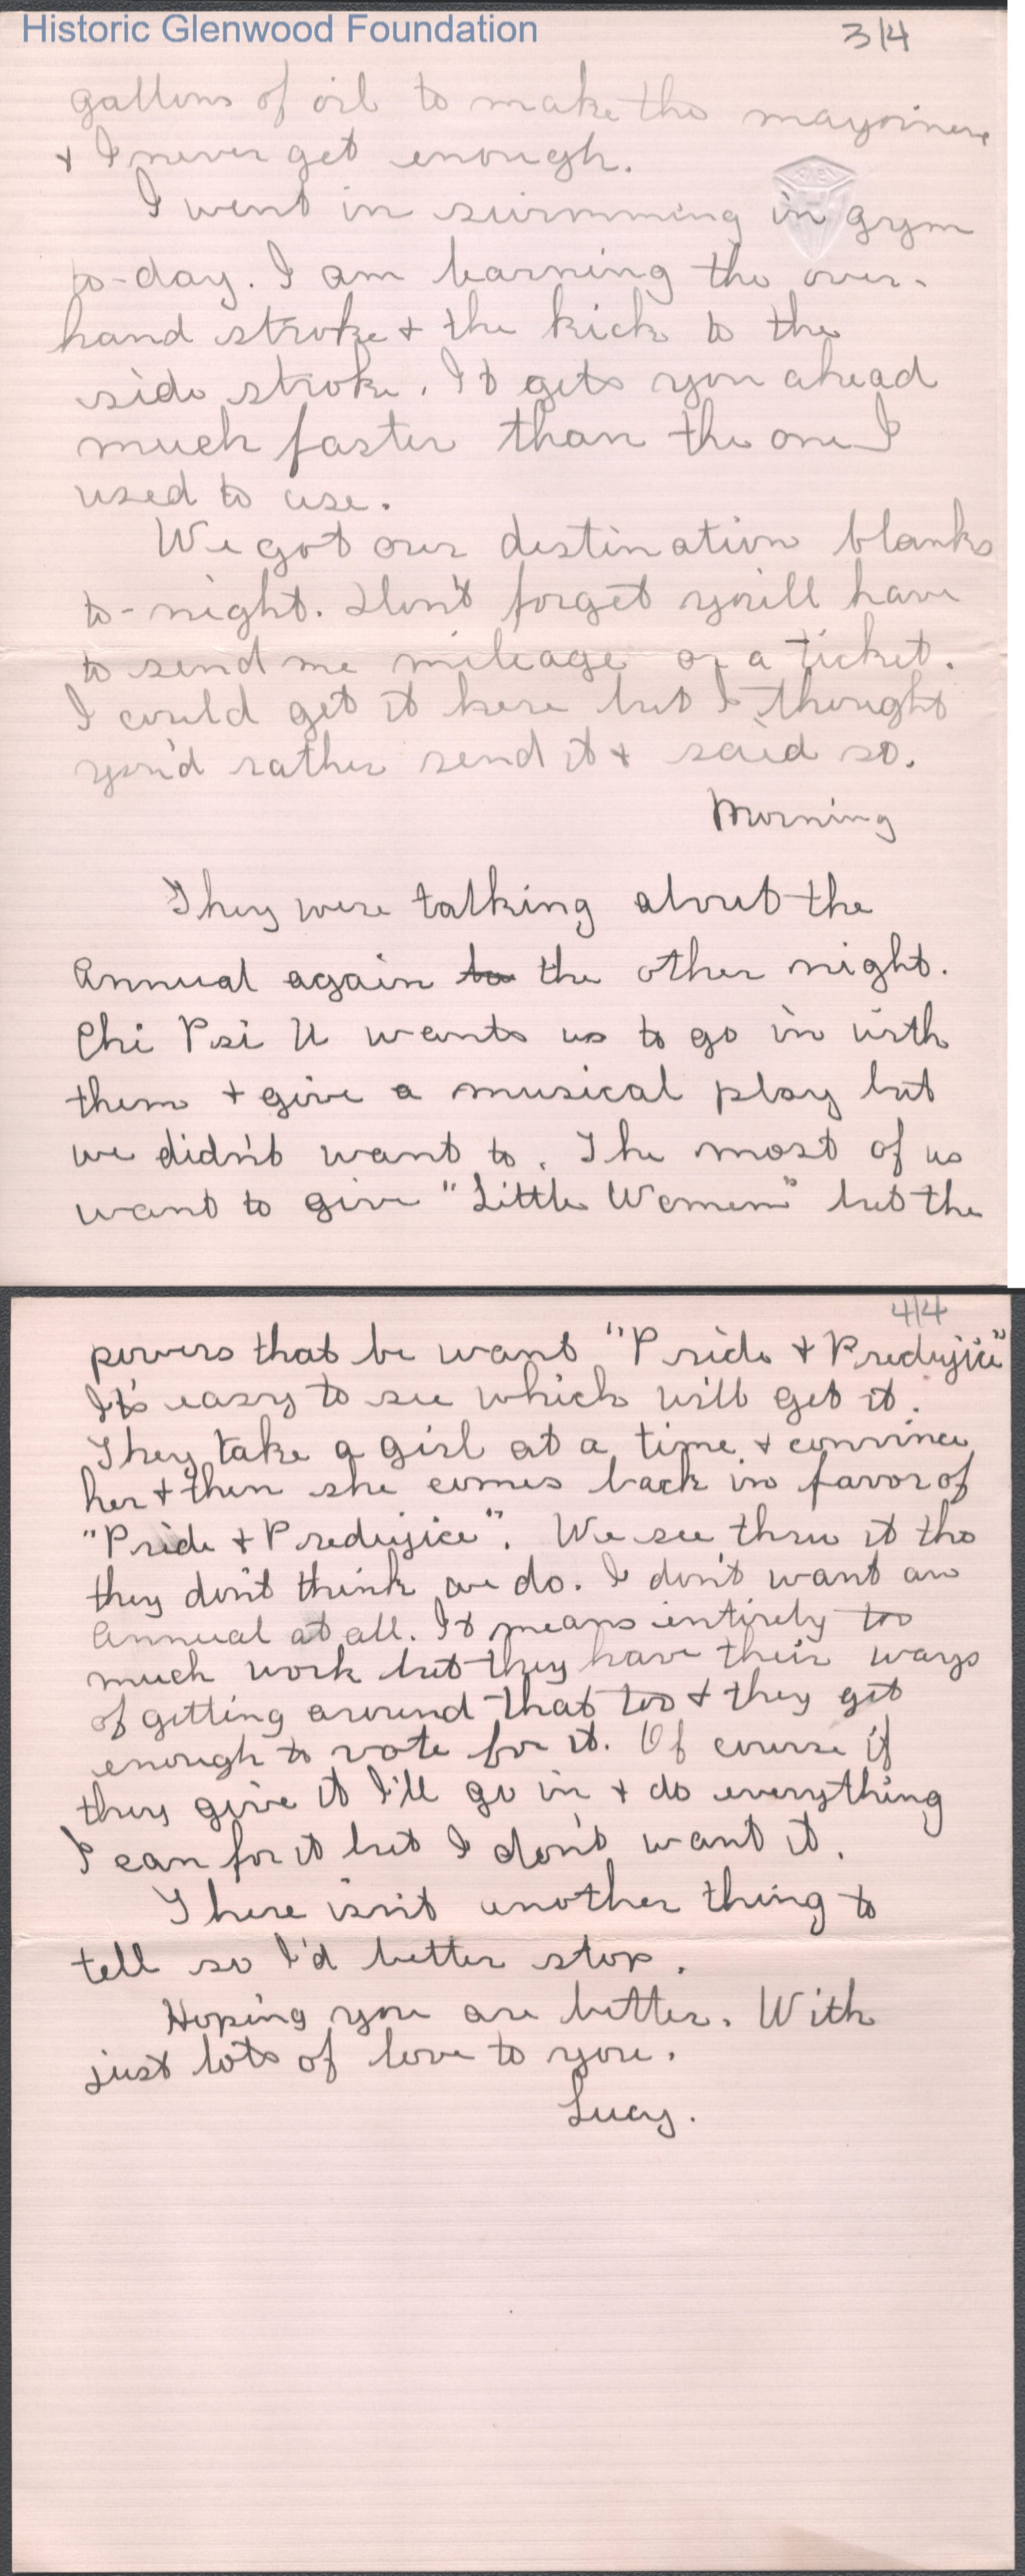 Historic Glenwood Foundation
3/4
gallons of oil to make the mayoinere
+ I never get enough.
I went in swimming in gym
to-day. I am learning the over-
hand stroke + the kick to the
side stroke. It gets you ahead
much faster than the one I
used to use.
We got our destination blanks
to-night. Don't forget you'll have
to send me mileage or a ticket.
I could get it here but I thought
you'd rather send it + said so.
Morning
They were talking about the
Annual again to the other night.
Chi Psi U wants us to go in with
them + give a musical play but
we didn't want to. The most of us
want to give "Little Women" but the
4/4
powers that be want "Pride + Predujice"
It's easy to see which will get it.
They take a girl at a time + convince
her + then she comes back in favor of
"Pride + Predujice". We see thru it tho
they don't think we do. I don't want an
Annual at all. It means entirely too
much work but they have their ways
of getting around that too + they get
enough to vote for it. Of course if
they give it I'll go in + do everything
I can for it but I don't want it.
There isn't another thing to
tell so I'd better stop.
Hoping you are better. With
just lots of love to you.
Lucy.